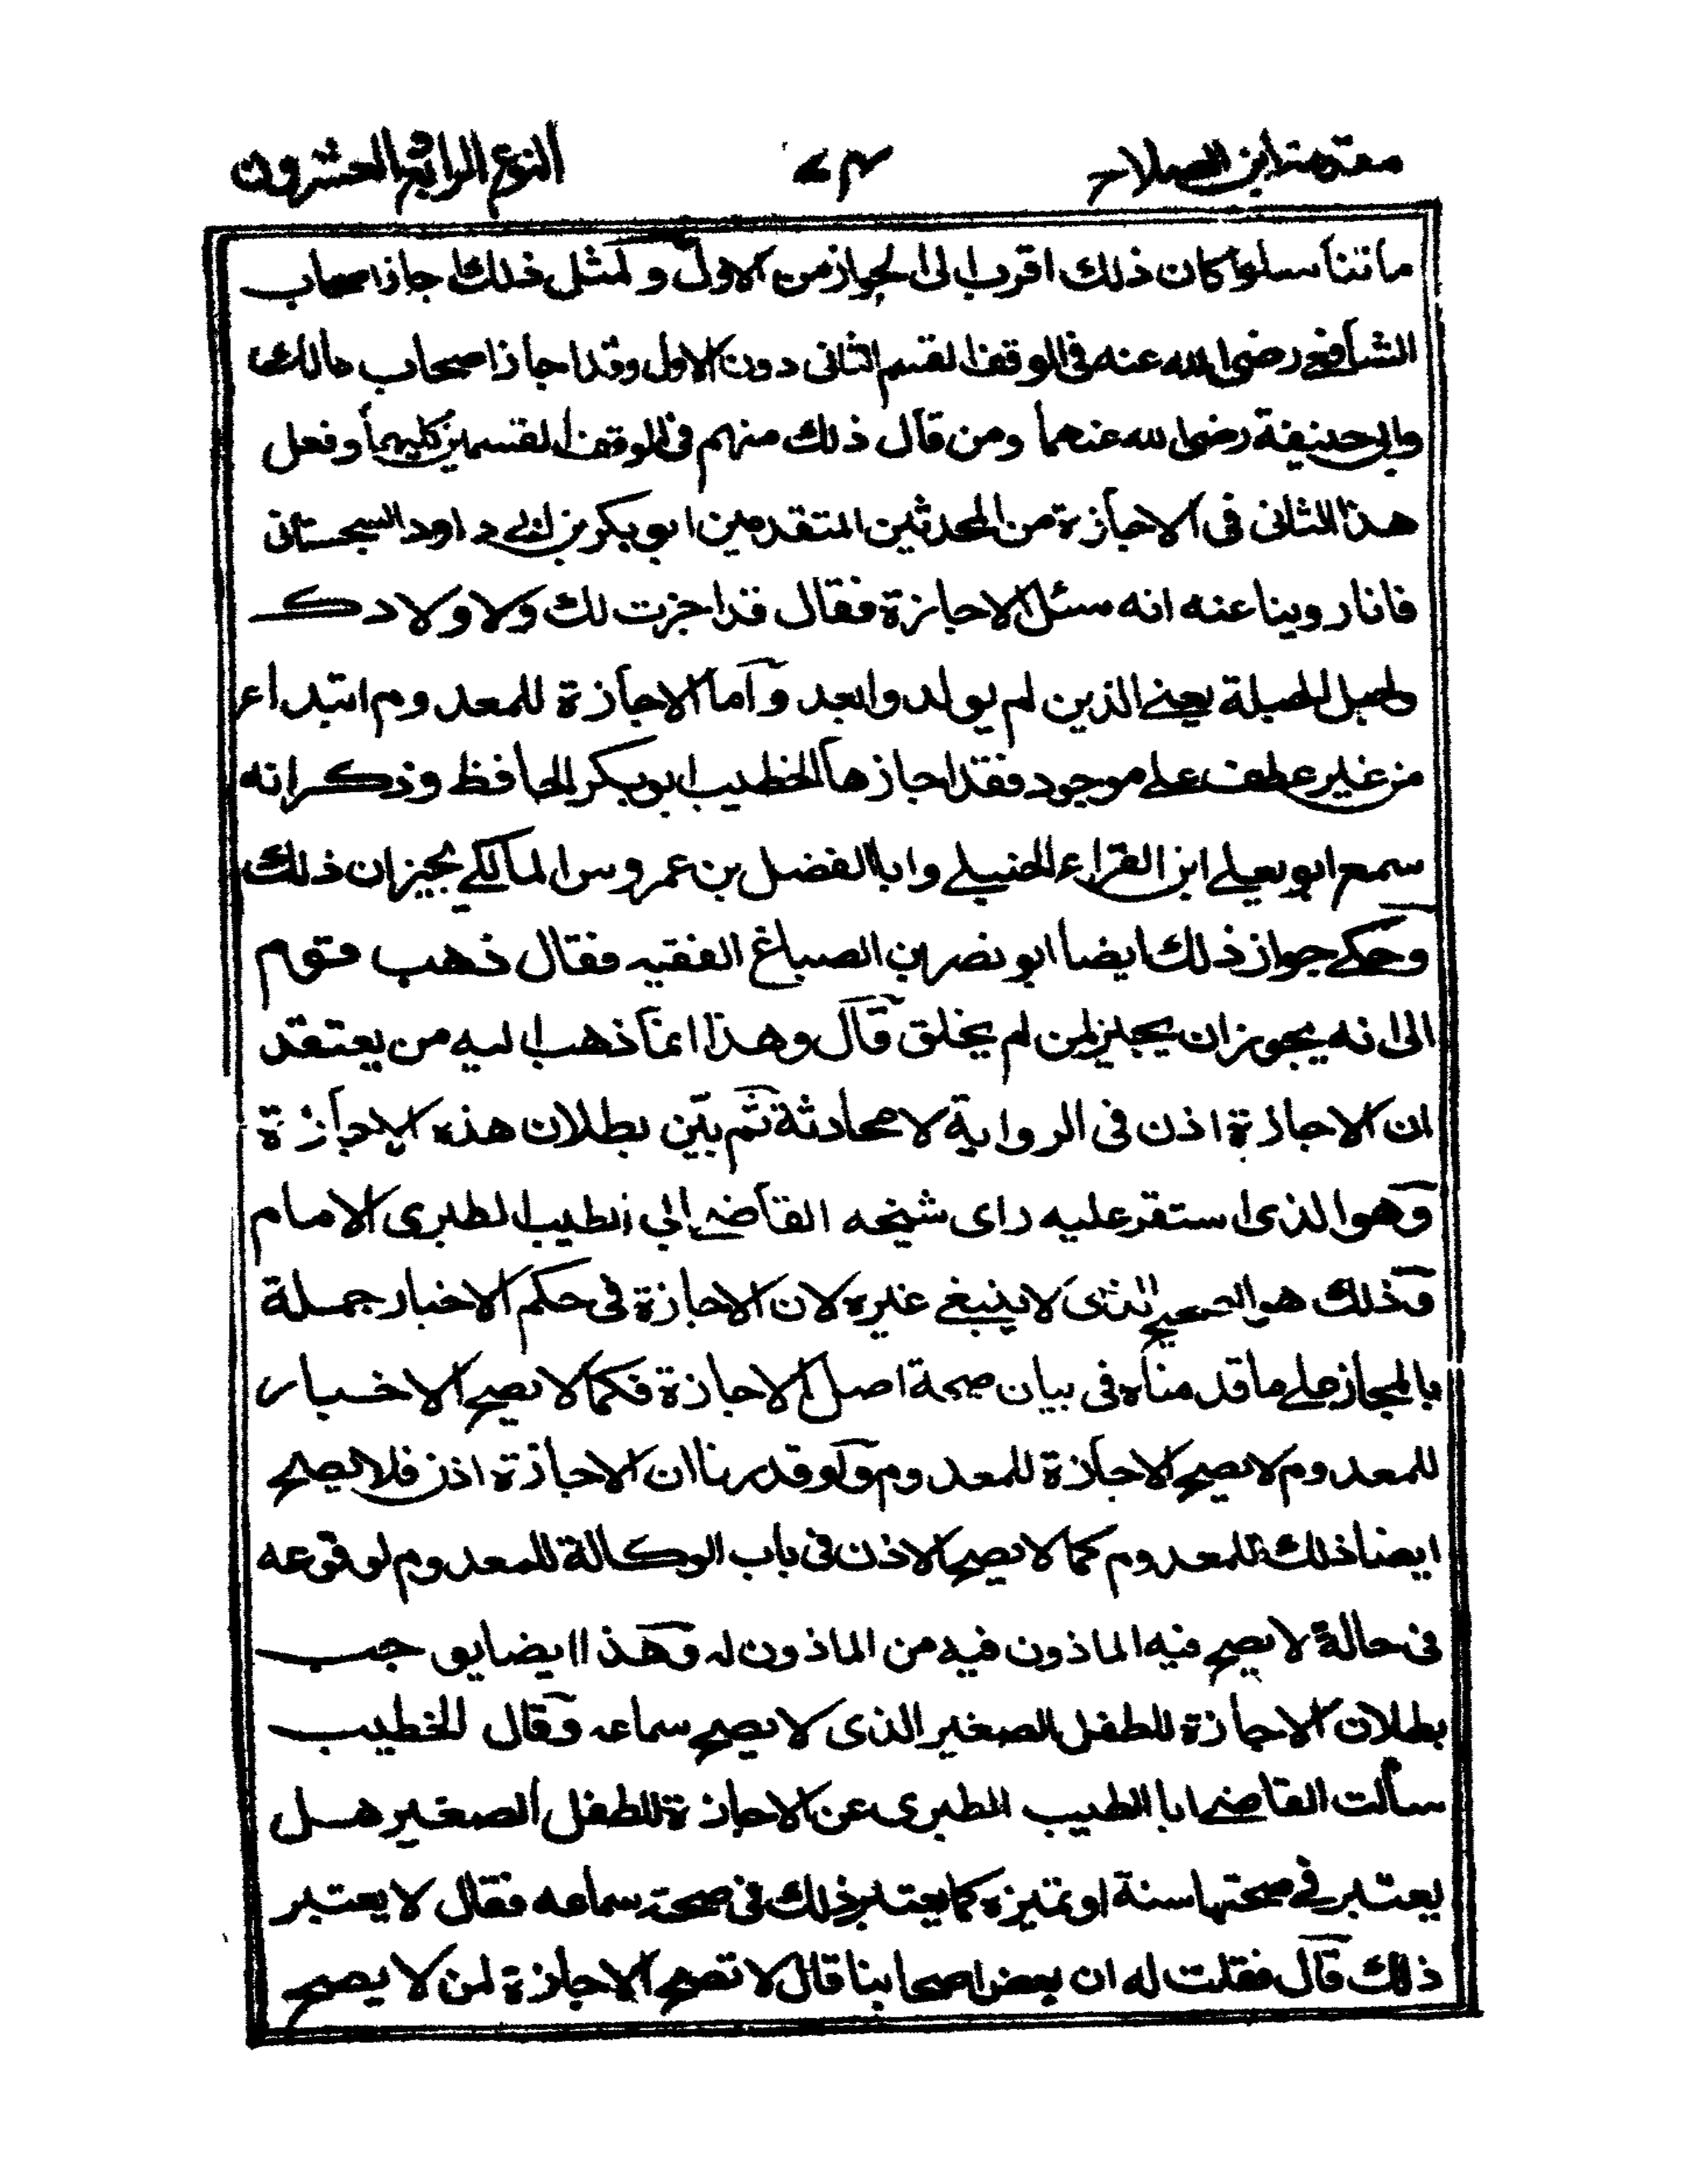 مقدمة ابن الصلاح ٧٣ النوع الرابع والعشرون
ما تناسلوا كان ذلك اقرب الى الجواز من الاول ولمثل ذلك اجاز اصحاب
الشافعي رضي الله عنه في الوقف القسم الثاني دون الاول وقد اجاز اصحاب مالك
وابي حنيفة رضي الله عنهما ومن قال ذلك منهم في الوقف القسمين كليهما وفعل
هذا الثاني في الاجازة من المحدثين المتقدمين ابو بكر بن ابي داود السجستاني
فانا روينا عنه انه سئل الاجازة فقال قد اجزت لك ولاولادك
ولحبل الحبلة يعني الذين لم يولدوا بعد وآما الاجازة للمعدوم ابتداء
من غير عطف على موجود فقد اجازها الخطيب ابو بكر الحافظ وذكر انه
سمع ابو يعلى ابن الفراء الحنبلي وابا الفضل بن عمروس المالكي يجيزان ذلك
وحكى جواز ذلك ايضا ابو نصر بن الصباغ الفقيه فقال ذهب قوم
الى انه يجوز ان يجيز لمن لم يخلق قال وهذا انما ذهب اليه من يعتقد
ان الاجازة اذن في الرواية لا محادثة ثم بيّن بطلان هذه الاجازة
وهو الذي استقر عليه راى شيخه القاضي ابي الطيب الطبري الامام
وذلك هو الصحيح الذي لا ينبغي غيره لان الاجازة في حكم الاخبار جملة
بالمجاز على ما قدمناه في بيان صحة اصل الاجازة فكما لا يصح الاخبار
للمعدوم لا يصح الاجازة للمعدوم ولو قدرنا ان الاجازة اذن فلا يصح
ايضا ذلك للمعدوم كما لا يصح الاذن في باب الوكالة للمعدوم لوقوعه
في حالة لا يصح فيه الماذون فيه من الماذون له وهذا ايضا يوجب
بطلان الاجازة للطفل الصغير الذي لا يصح سماعه وقال الخطيب
سألت القاضي ابا الطيب الطبري عن الاجازة للطفل الصغير هل
يعتبر في صحتها سنة او تميزه كما يعتبر ذلك في صحة سماعه فقال لا يعتبر
ذلك قال فقلت له ان بعض اصحابنا قال لا تصح الاجازة لمن لا يصح